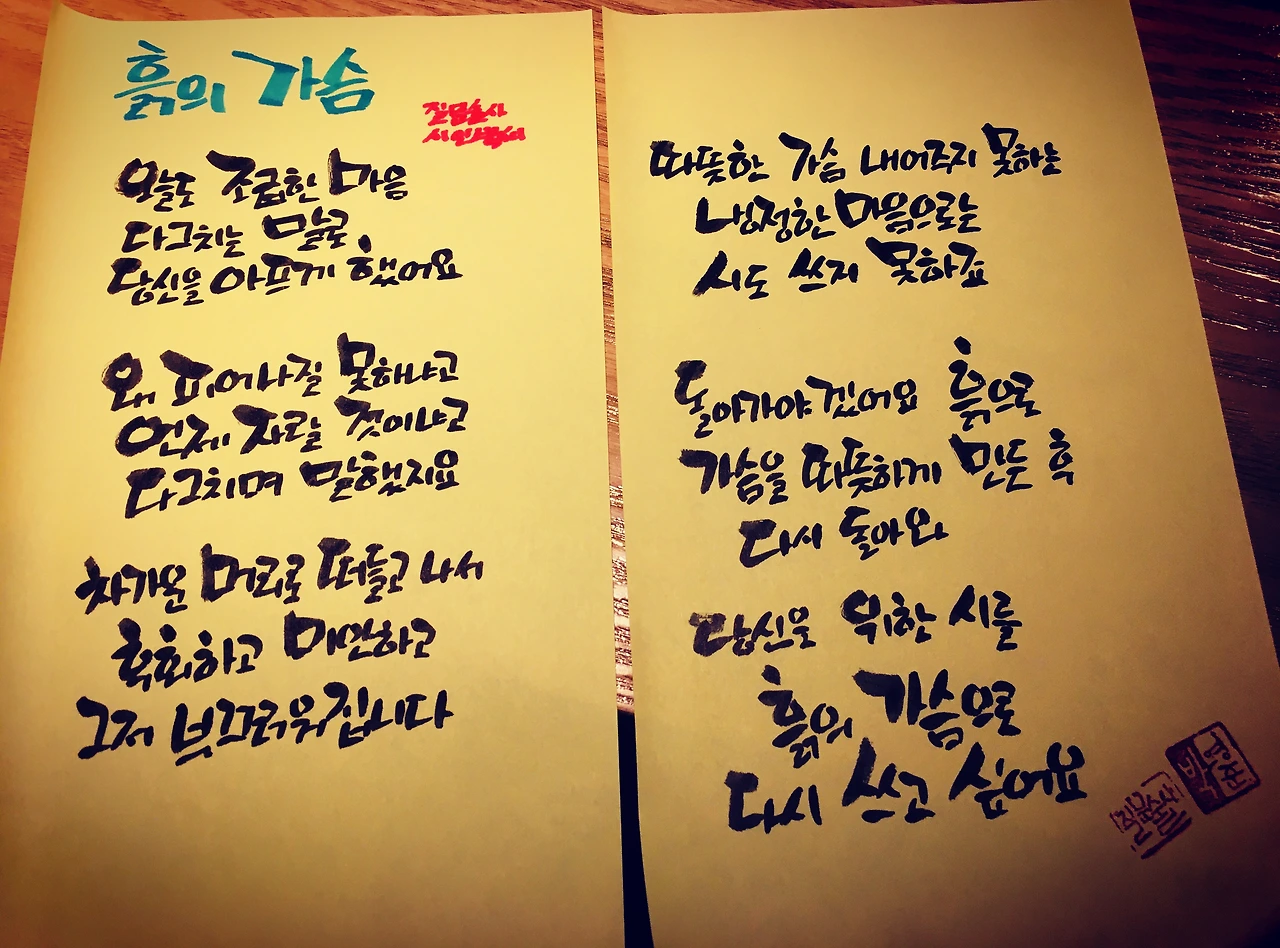 흙의 가슴
질문술사
시인박씨
오늘도 조급한 마음
다그치는 말로
당신을 아프게 했어요
왜 피어나질 못하냐고
언제 자랄 것이냐고
다그치며 말했지요
차가운 머리로 떠들고 나서
후회하고 미안하고
그저 부끄러워집니다
따뜻한 가슴 내어주지 못하는
냉정한 마음으로는
시도 쓰지 못하죠
돌아가야겠어요 흙으로
가슴을 따뜻하게 만든 후
다시 돌아와
당신을 위한 시를
흙의 가슴으로
다시 쓰고 싶어요
질문술사